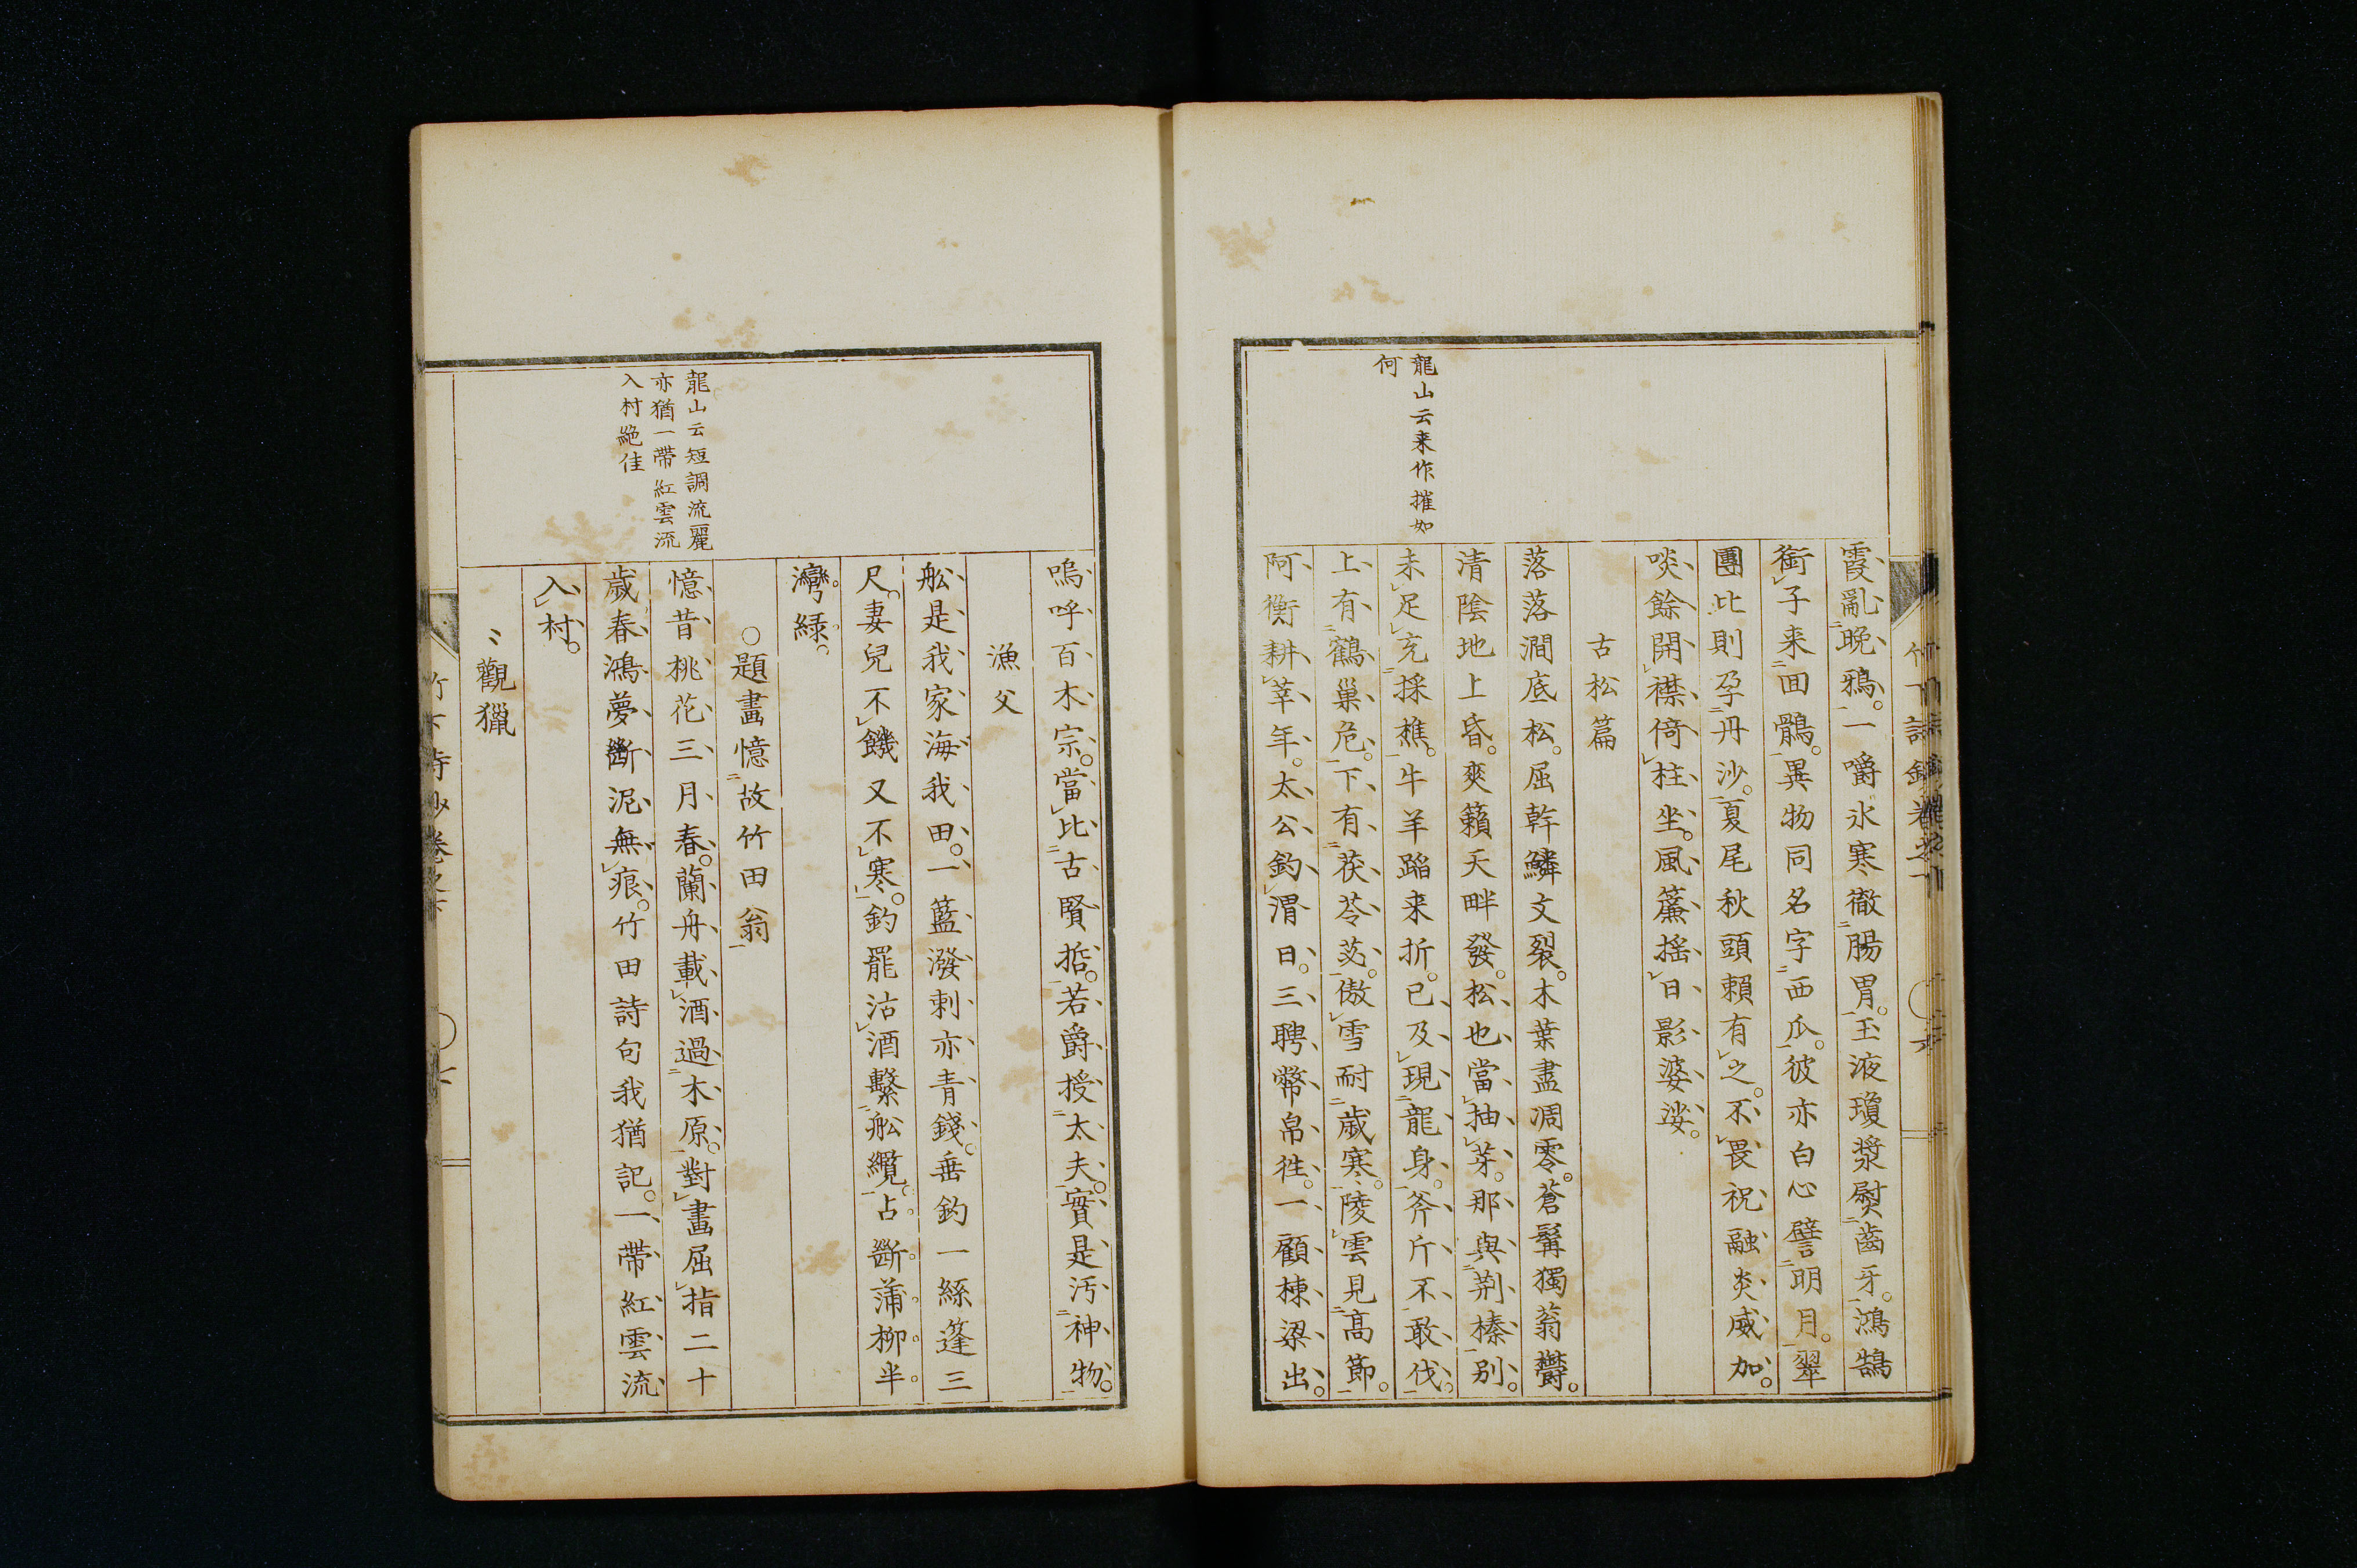 霞亂晚鴉。一嚼氷寒徹腸胃。玉液瓊漿熨齒牙。鴻鵠
銜子来回鶻。異物同名字西瓜。彼亦白心譬明月。翠
團比則孕丹沙。夏尾秋頭賴有之。不畏祝融炎威加。
啖餘開襟倚柱坐。風簾搖日影婆娑。
古松篇
落落澗底松。屈幹鱗文裂。木葉盡凋零。蒼髯獨蓊鬱。
清陰地上昏。爽籟天畔發。松也當抽芽。那與荊榛别。
龍山云来作摧如
何
未足充採樵。牛羊蹈来折。已及現龍身。斧斤不敢伐。
上有鶴巢危。下有茯苓苾。傲雪耐歲寒。陵雲見高節。
阿衡耕莘年。太公釣渭日。三聘幣帛徃。一顧棟梁出。
嗚呼百木宗。當比古賢哲。若爵授太夫。實是汚神物。
漁父
舩是我家海我田。一籃潑剌亦青錢。垂釣一絲篷三
尺。妻兒不饑又不寒。釣罷沽酒繫舩纜。占斷蒲柳半
灣綠。
○題畫憶故竹田翁
龍山云短調流麗
亦猶一帶紅雲流
入村絶佳
憶昔桃花三月春。蘭舟載酒過木原。對畫屈指二十
歲春鴻夢斷泥無痕。竹田詩句我猶記。一帶紅雲流
入村。
〻觀獵